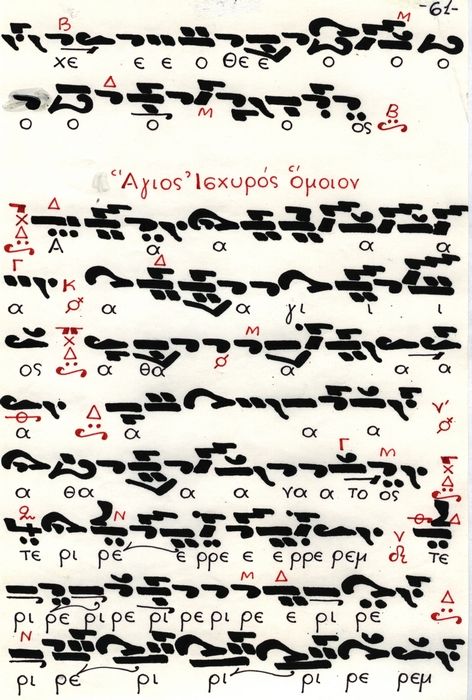 -61-
Β Μ
χε ε ε ο θε ε ο ο ο
Δ Μ Β
ο ο ο ο ος
"Αγιος 'Ισχυρός ὅμοιον
Δ
Α α α α α
Γ Κ Δ
α α α γι ι ι
Μ
ος α θα α α α
Δ ν'
α α α α
Γ Μ
α θα α α να α το ος
Ν Δ
τε ρι ρε ε ρρε ε ε ρρε ρεμ ν τε
Μ Δ Δ
ρι ρε ρι ρε ρε ρι ρε ρι ρε ε ρι ρε
Ν
ρι ρε ρι ρι ρι ρε ρεμ